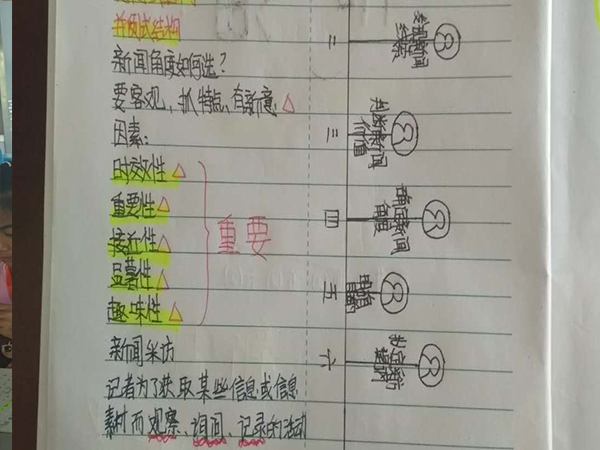 并列式结构
新闻角度如何选？
要客观，抓特点，有新意△
因素：
时效性△
重要性△
接近性△
显著性△
趣味性△
重要
新闻采访
记者为了获取某些信息或信息
素材而观察、询问、记录的活动
二
三
判断新闻
价值
四
新闻
角度
五
六